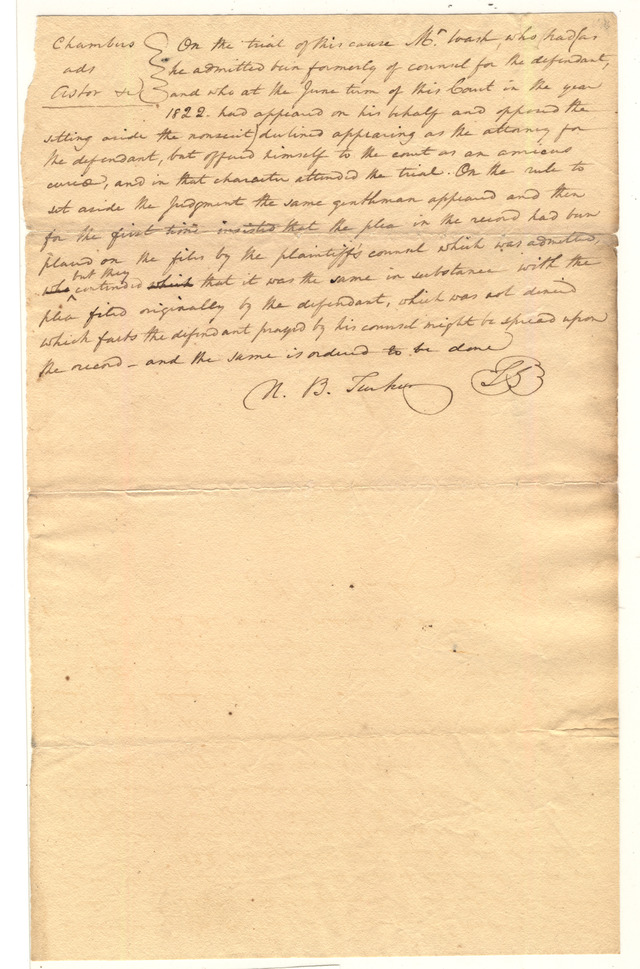 Chambers
ads
Astor &c
On the trial of this cause Mr. Wash, who had (as
he admitted been formerly of counsel for the defendant,
and who at the June term of this Court in the year
1822. had appeared on his behalf and opposed the
setting aside the nonsuit) declined appearing as the attorney for
the defendant, but offered himself to the court as an amicus
curiæ, and in that character attended the trial. On the rule to
set aside the Judgment the same gentleman appeared and then
for the first time insisted that the plea in the record had been
placed on the files by the plaintiff's counsel which was admitted,
but they
who contended which that it was the same in substance with the
plea filed originally by the defendant, which was not denied
which facts the defendant prayed by his counsel might be spread upon
the record – and the same is ordered to be done
N. B. Tucker